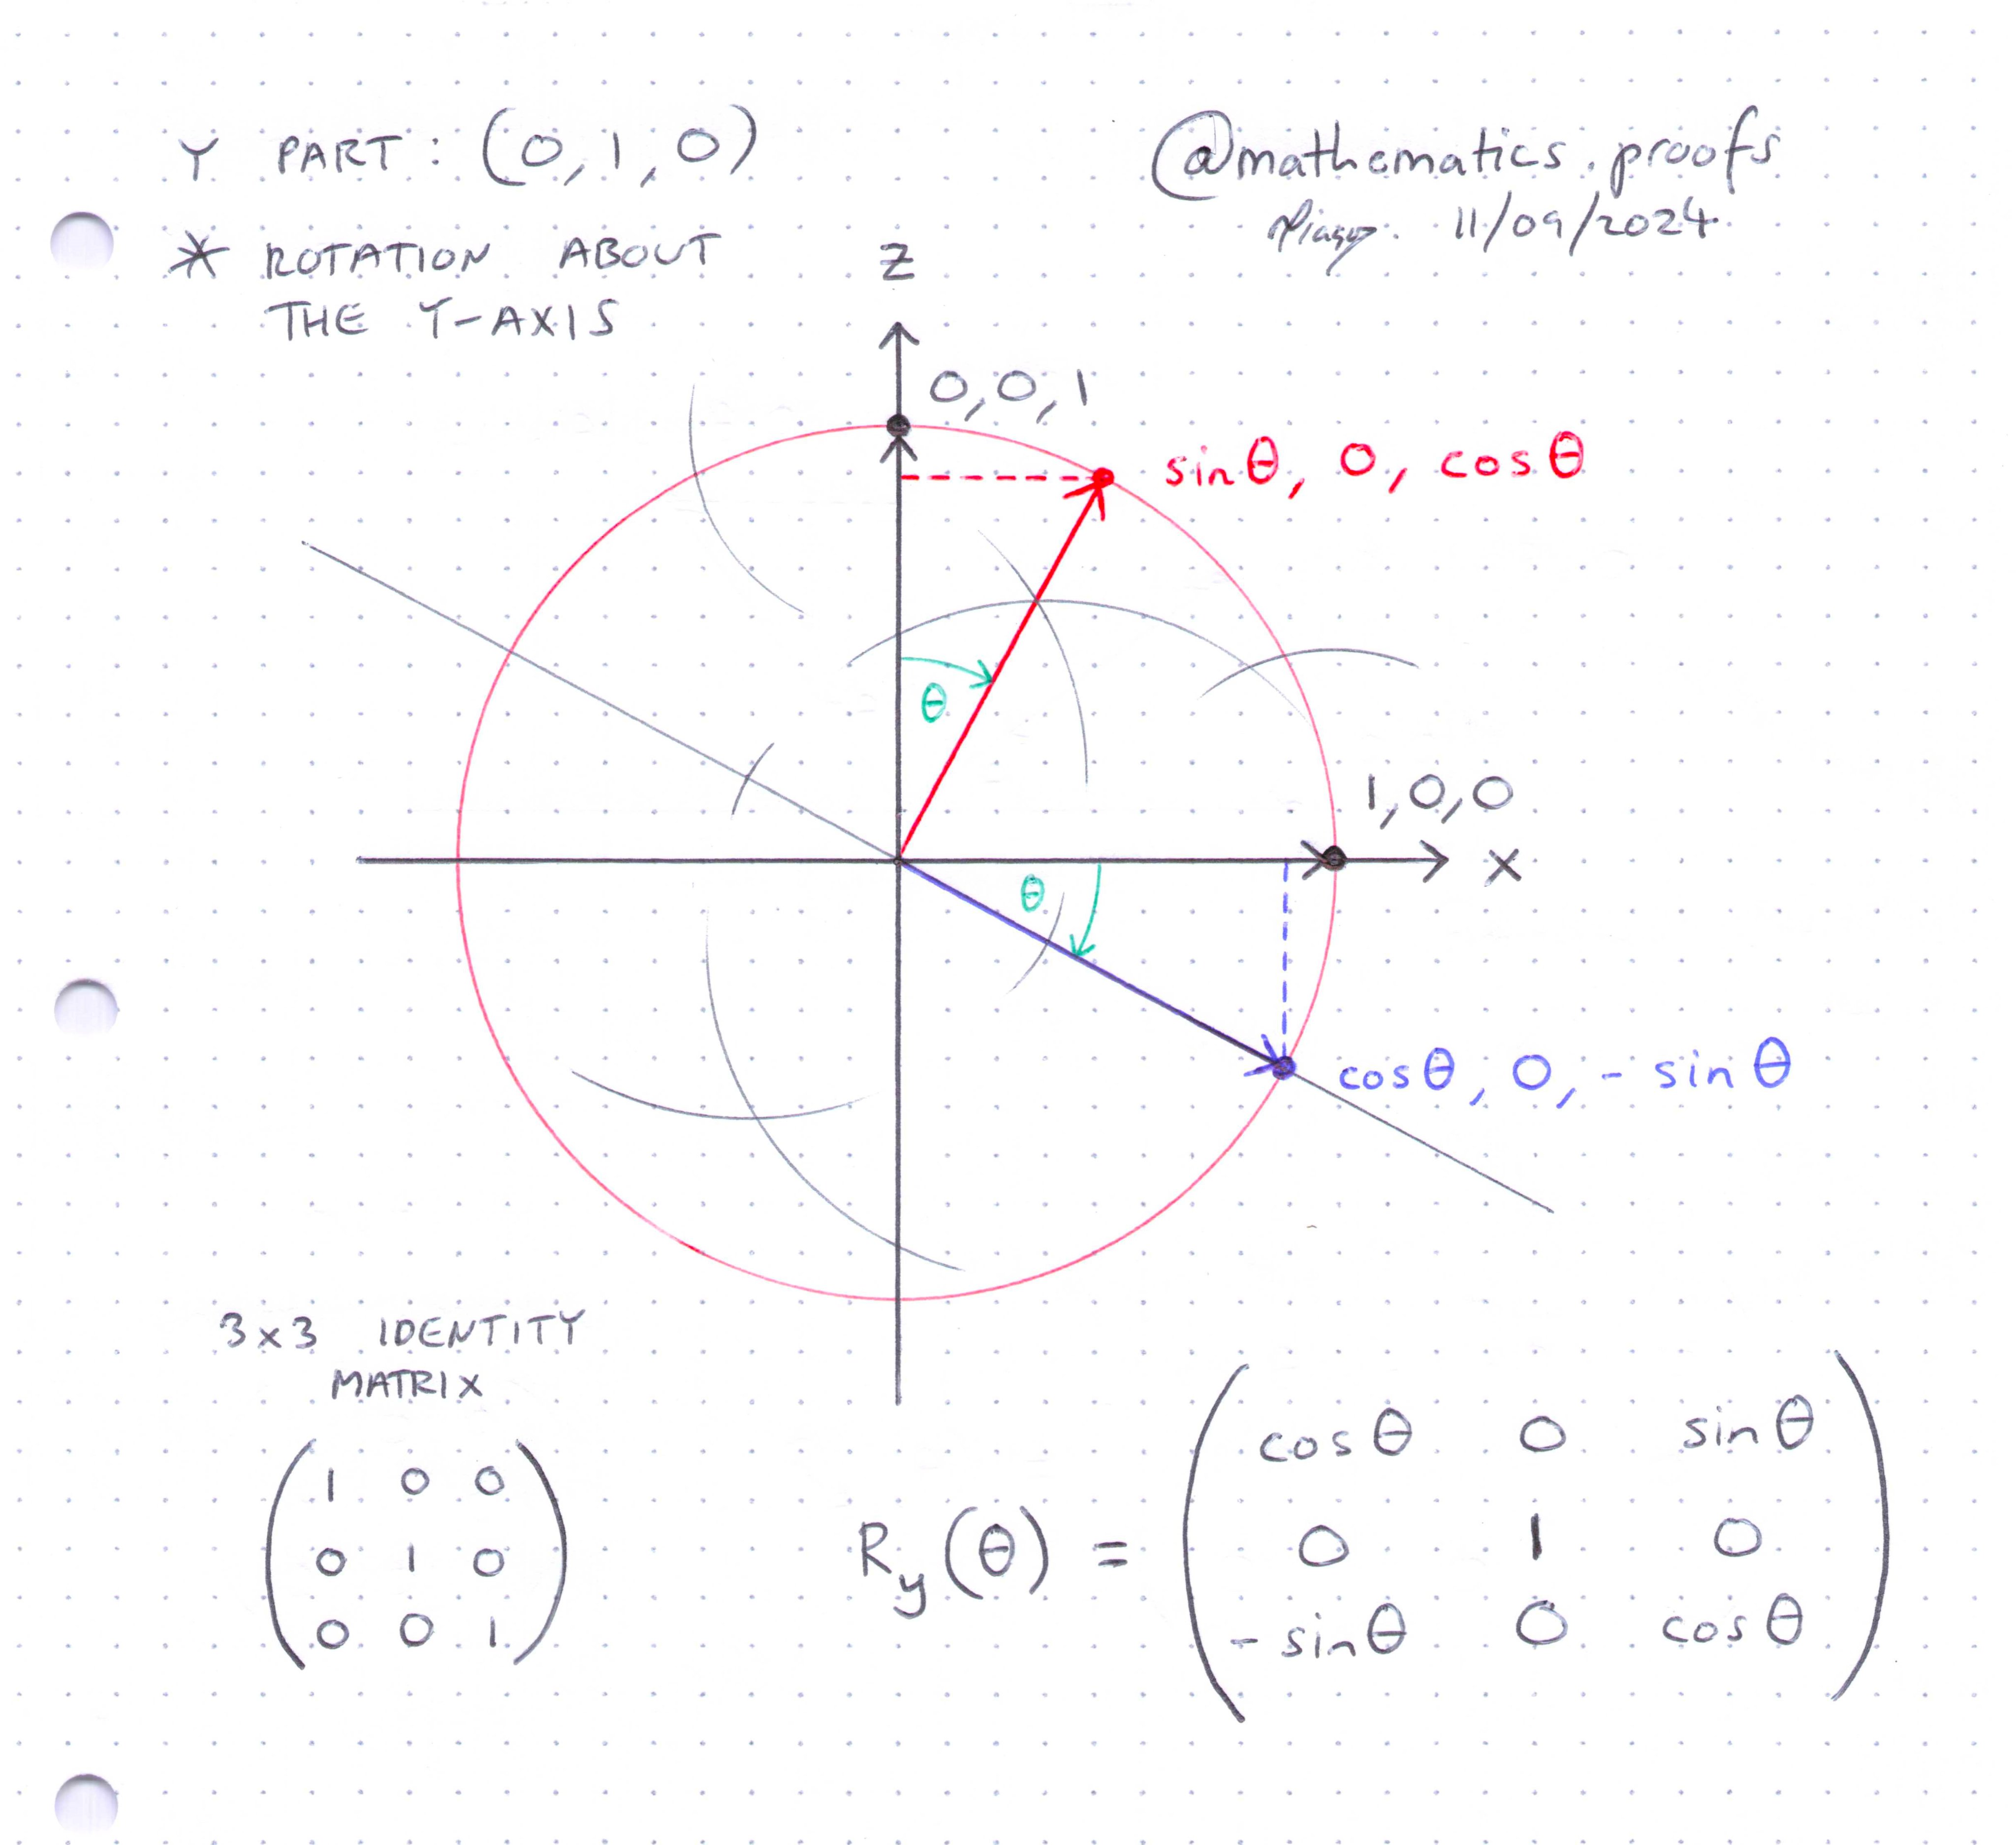 Y PART: (0,1,0)
@mathematics.proofs
11/09/2024
* ROTATION ABOUT
THE Y-AXIS
Z
0,0,1
sinθ, 0, cosθ
θ
1,0,0
X
θ
cosθ, 0, - sinθ
3x3 IDENTITY
MATRIX
1 0 0
0 1 0
0 0 1
R_y(θ) =
cosθ 0 sinθ
0 1 0
- sinθ 0 cosθ